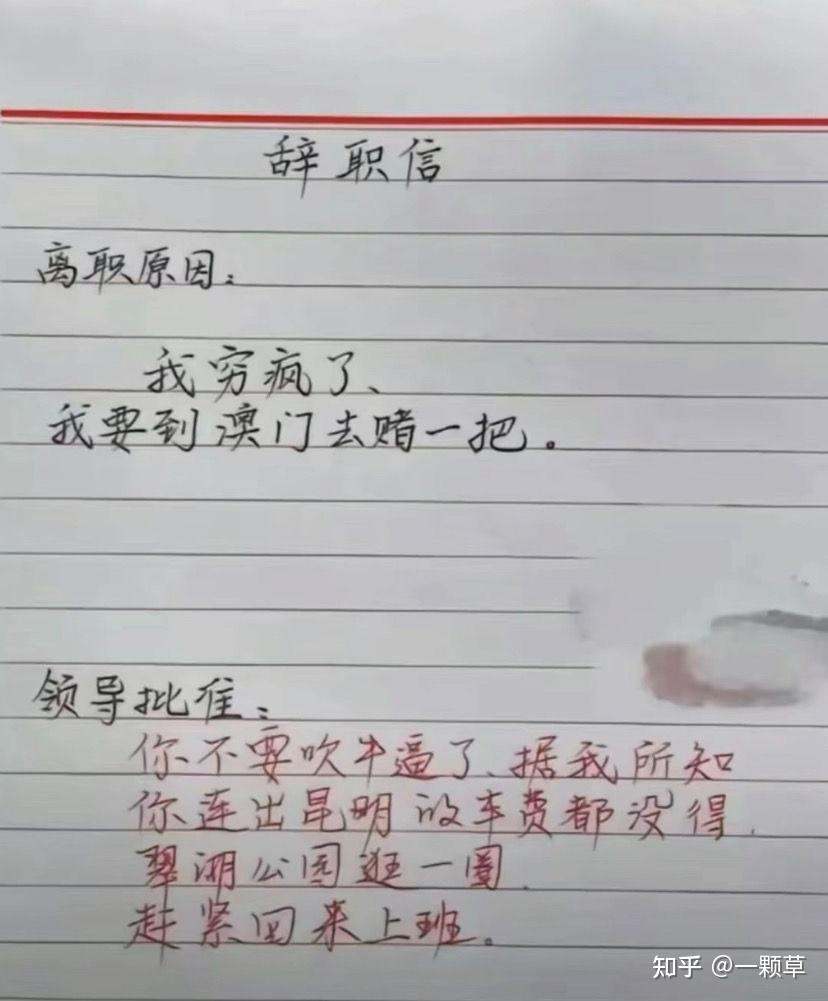 辞职信
离职原因：
我穷疯了、
我要到澳门去赌一把。
领导批准：
你不要吹牛逼了、据我所知
你连出昆明的车费都没得，
翠湖公园逛一圈，
赶紧回来上班。
知乎 @一颗草